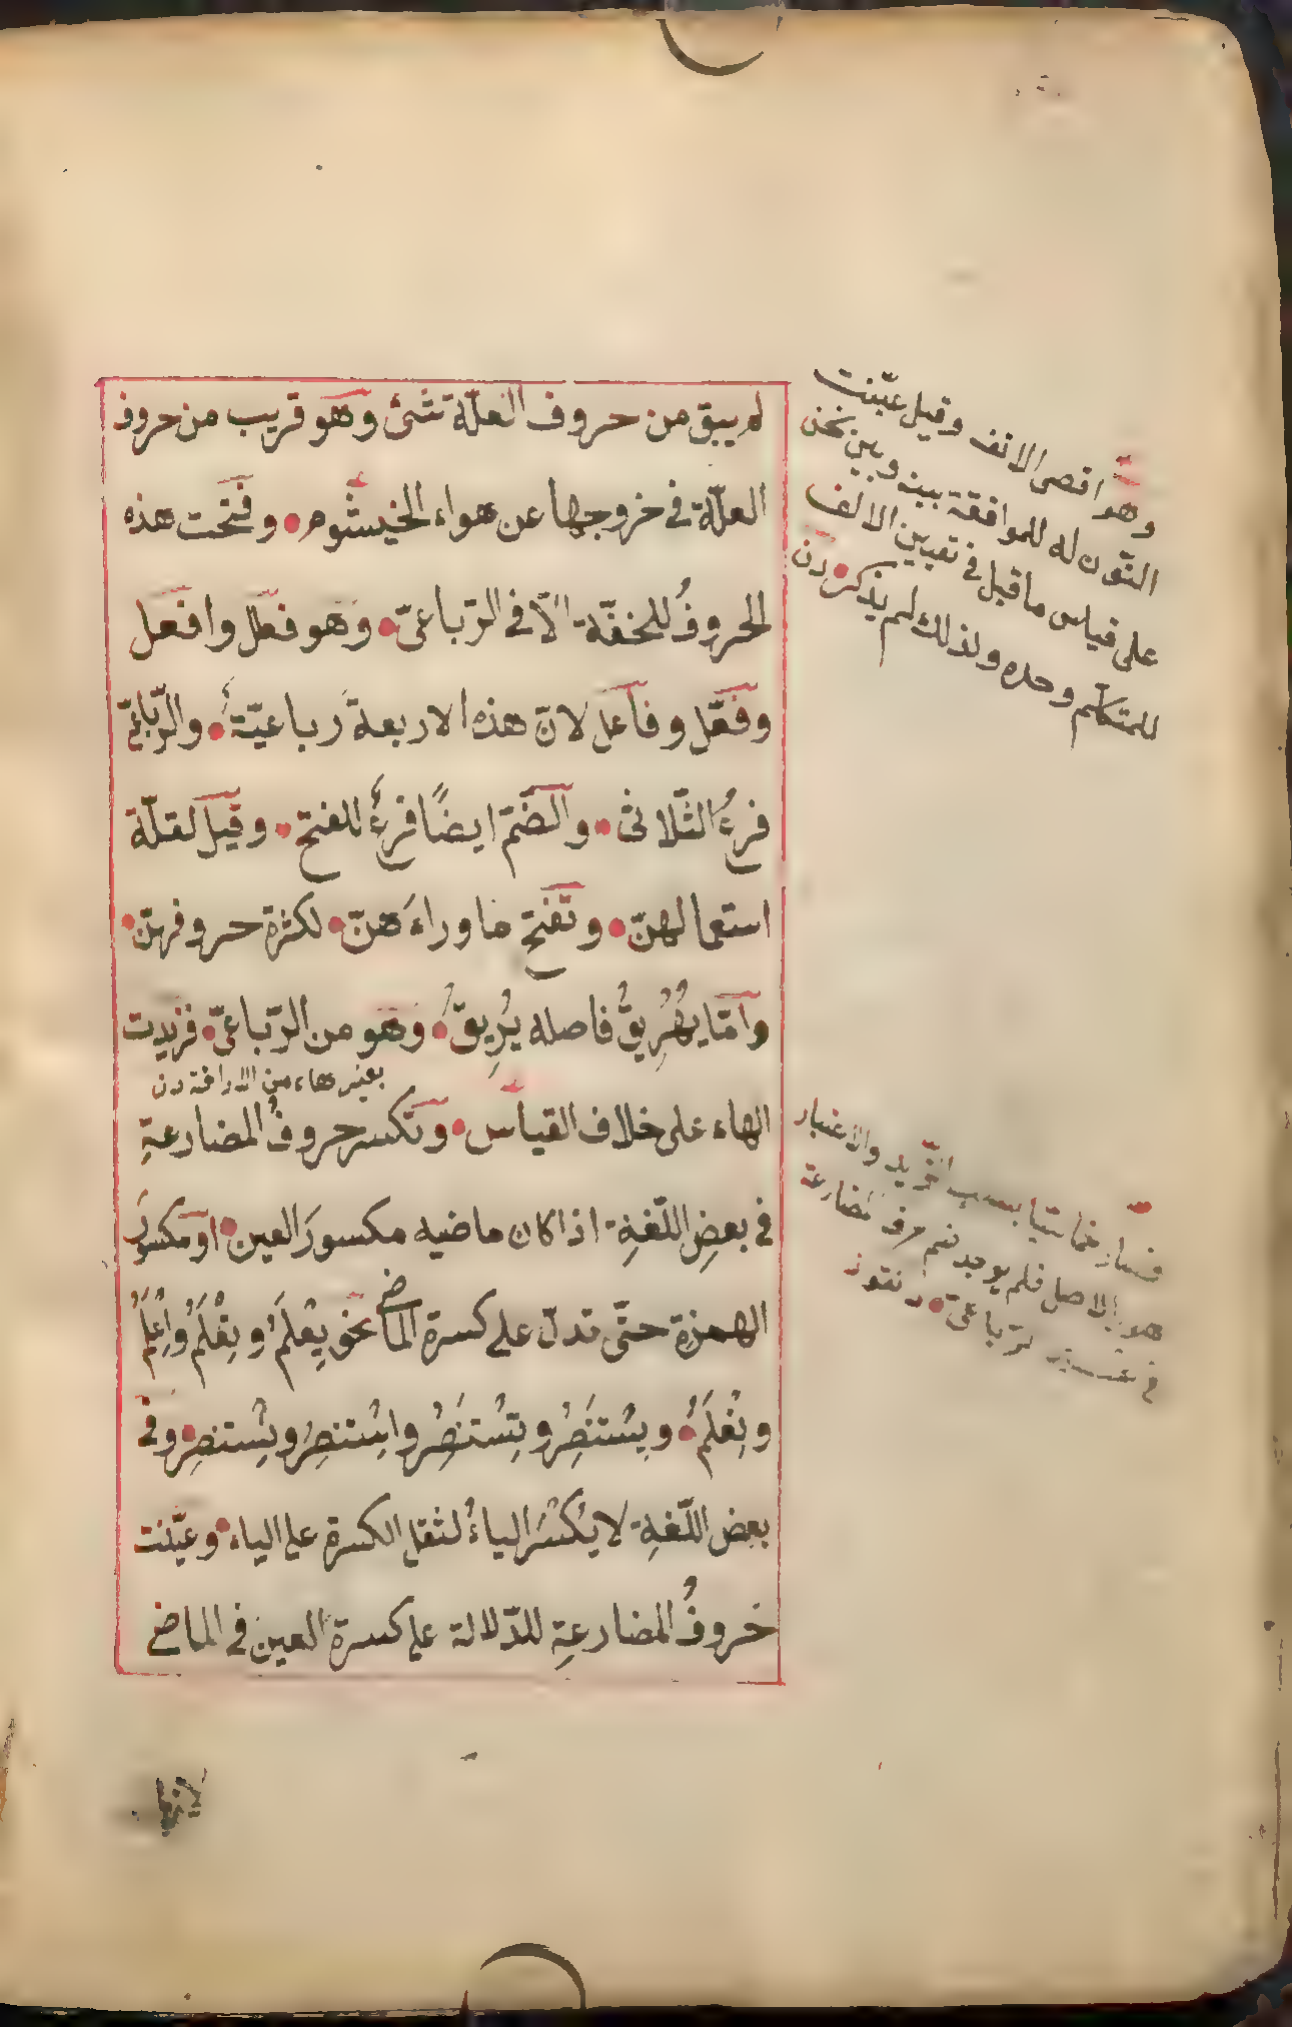 لم يبق من حروف العلّة شئ وهو قريب من حروف
العلّة في خروجها عن هواء الخيشوم وفتحت هذه
الحروفُ للخفّة الّا في الرّباعىّ وهو فعلل وافعل
وفعّل وفاعل لانّ هذه الاربعة رباعيّة والرّباعىّ
فرعُ الثّلاثى والضّم ايضًا فرعٌ للفتح وقيل لقلّة
استعمالهنّ وتفتح ماوراءَهنّ لكثرة حروفهنّ
وامّا يُهْرِيقُ فاصله يُرِيقُ وهو من الرّباعىّ فزيدت
بغير هاء من الاراقة
الهاء على خلاف القياس وتكسر حروفُ المضارعةِ
في بعضِ اللّغةِ اذا كان ماضيه مكسورَ العين او مكسورَ
الهمزة حتّى تدلّ على كسرة الماضى نحو يِعْلَمُ وتِعْلَمُ واِعْلَمُ
ونِعْلَمُ ويِسْتَنْصِرُ وتِسْتَنْصِرُ واِسْتنصِرُ ونِستنصِرُ وفى
بعض اللّغةِ لا يُكْسَرُ الياءُ لثقل الكسرة على الياء وعيّنت
حروفُ المضارعةِ للدّلالة على كسرة العين في الماضى
لانها
وهو اقصى الانف وقيل عيّنت
النّون له للموافقة بينه وبين نحن
على قياس ما قيل في تعيين الالف
للمتكلّم وحده ولذلك لم يذكر
فصار خماسيّا بسبب والاعتبار
هو الاصل فلم يوجد ضم حرف مضارعة
في الرّباعىّ